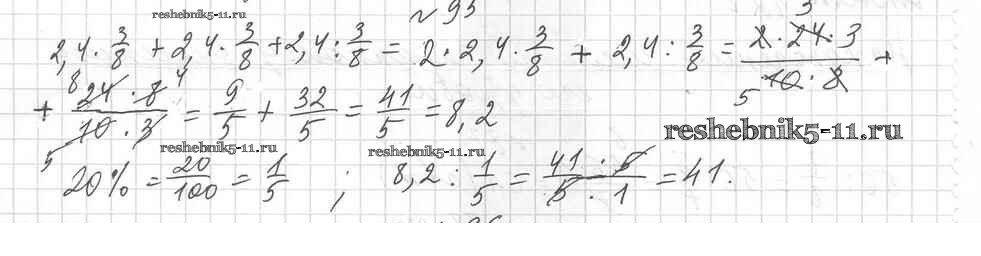 reshebnik5-11.ru
№ 95
2,4 · 3/8 + 2,4 · 3/8 + 2,4 : 3/8 = 2 · 2,4 · 3/8 + 2,4 : 3/8 = 2 · 24 · 3 / 10 · 8 +
+ 24 · 8 / 10 · 3 = 9/5 + 32/5 = 41/5 = 8,2
reshebnik5-11.ru
reshebnik5-11.ru
reshebnik5-11.ru
20% = 20/100 = 1/5 ; 8,2 : 1/5 = 41 · 5 / 5 · 1 = 41.